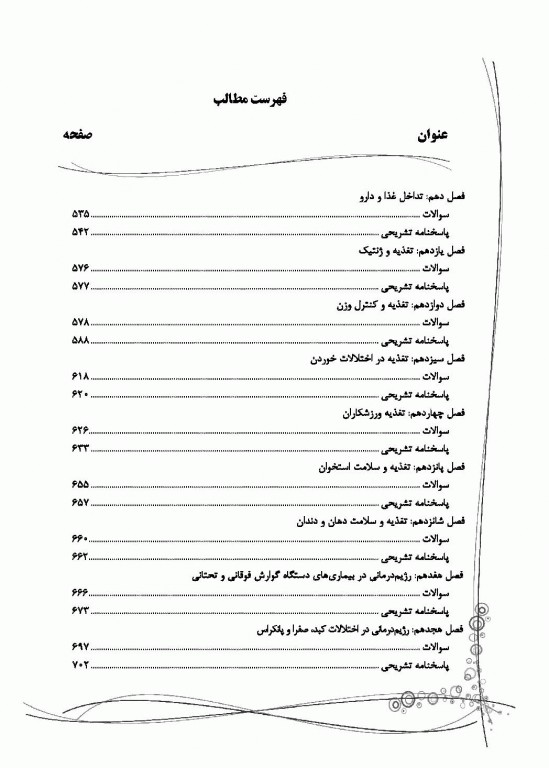 فهرست مطالب
عنوان صفحه
فصل دهم: تداخل غذا و دارو
سوالات ........ ۵۳۵
پاسخنامه تشریحی ........ ۵۴۲
فصل یازدهم: تغذیه و ژنتیک
سوالات ........ ۵۷۶
پاسخنامه تشریحی ........ ۵۷۷
فصل دوازدهم: تغذیه و کنترل وزن
سوالات ........ ۵۷۸
پاسخنامه تشریحی ........ ۵۸۸
فصل سیزدهم: تغذیه در اختلالات خوردن
سوالات ........ ۶۱۸
پاسخنامه تشریحی ........ ۶۲۰
فصل چهاردهم: تغذیه ورزشکاران
سوالات ........ ۶۲۶
پاسخنامه تشریحی ........ ۶۳۳
فصل پانزدهم: تغذیه و سلامت استخوان
سوالات ........ ۶۵۵
پاسخنامه تشریحی ........ ۶۵۷
فصل شانزدهم: تغذیه و سلامت دهان و دندان
سوالات ........ ۶۶۰
پاسخنامه تشریحی ........ ۶۶۲
فصل هفدهم: رژیم‌درمانی در بیماری‌های دستگاه گوارش فوقانی و تحتانی
سوالات ........ ۶۶۶
پاسخنامه تشریحی ........ ۶۷۳
فصل هجدهم: رژیم‌درمانی در اختلالات کبد، صفرا و پانکراس
سوالات ........ ۶۹۷
پاسخنامه تشریحی ........ ۷۰۲